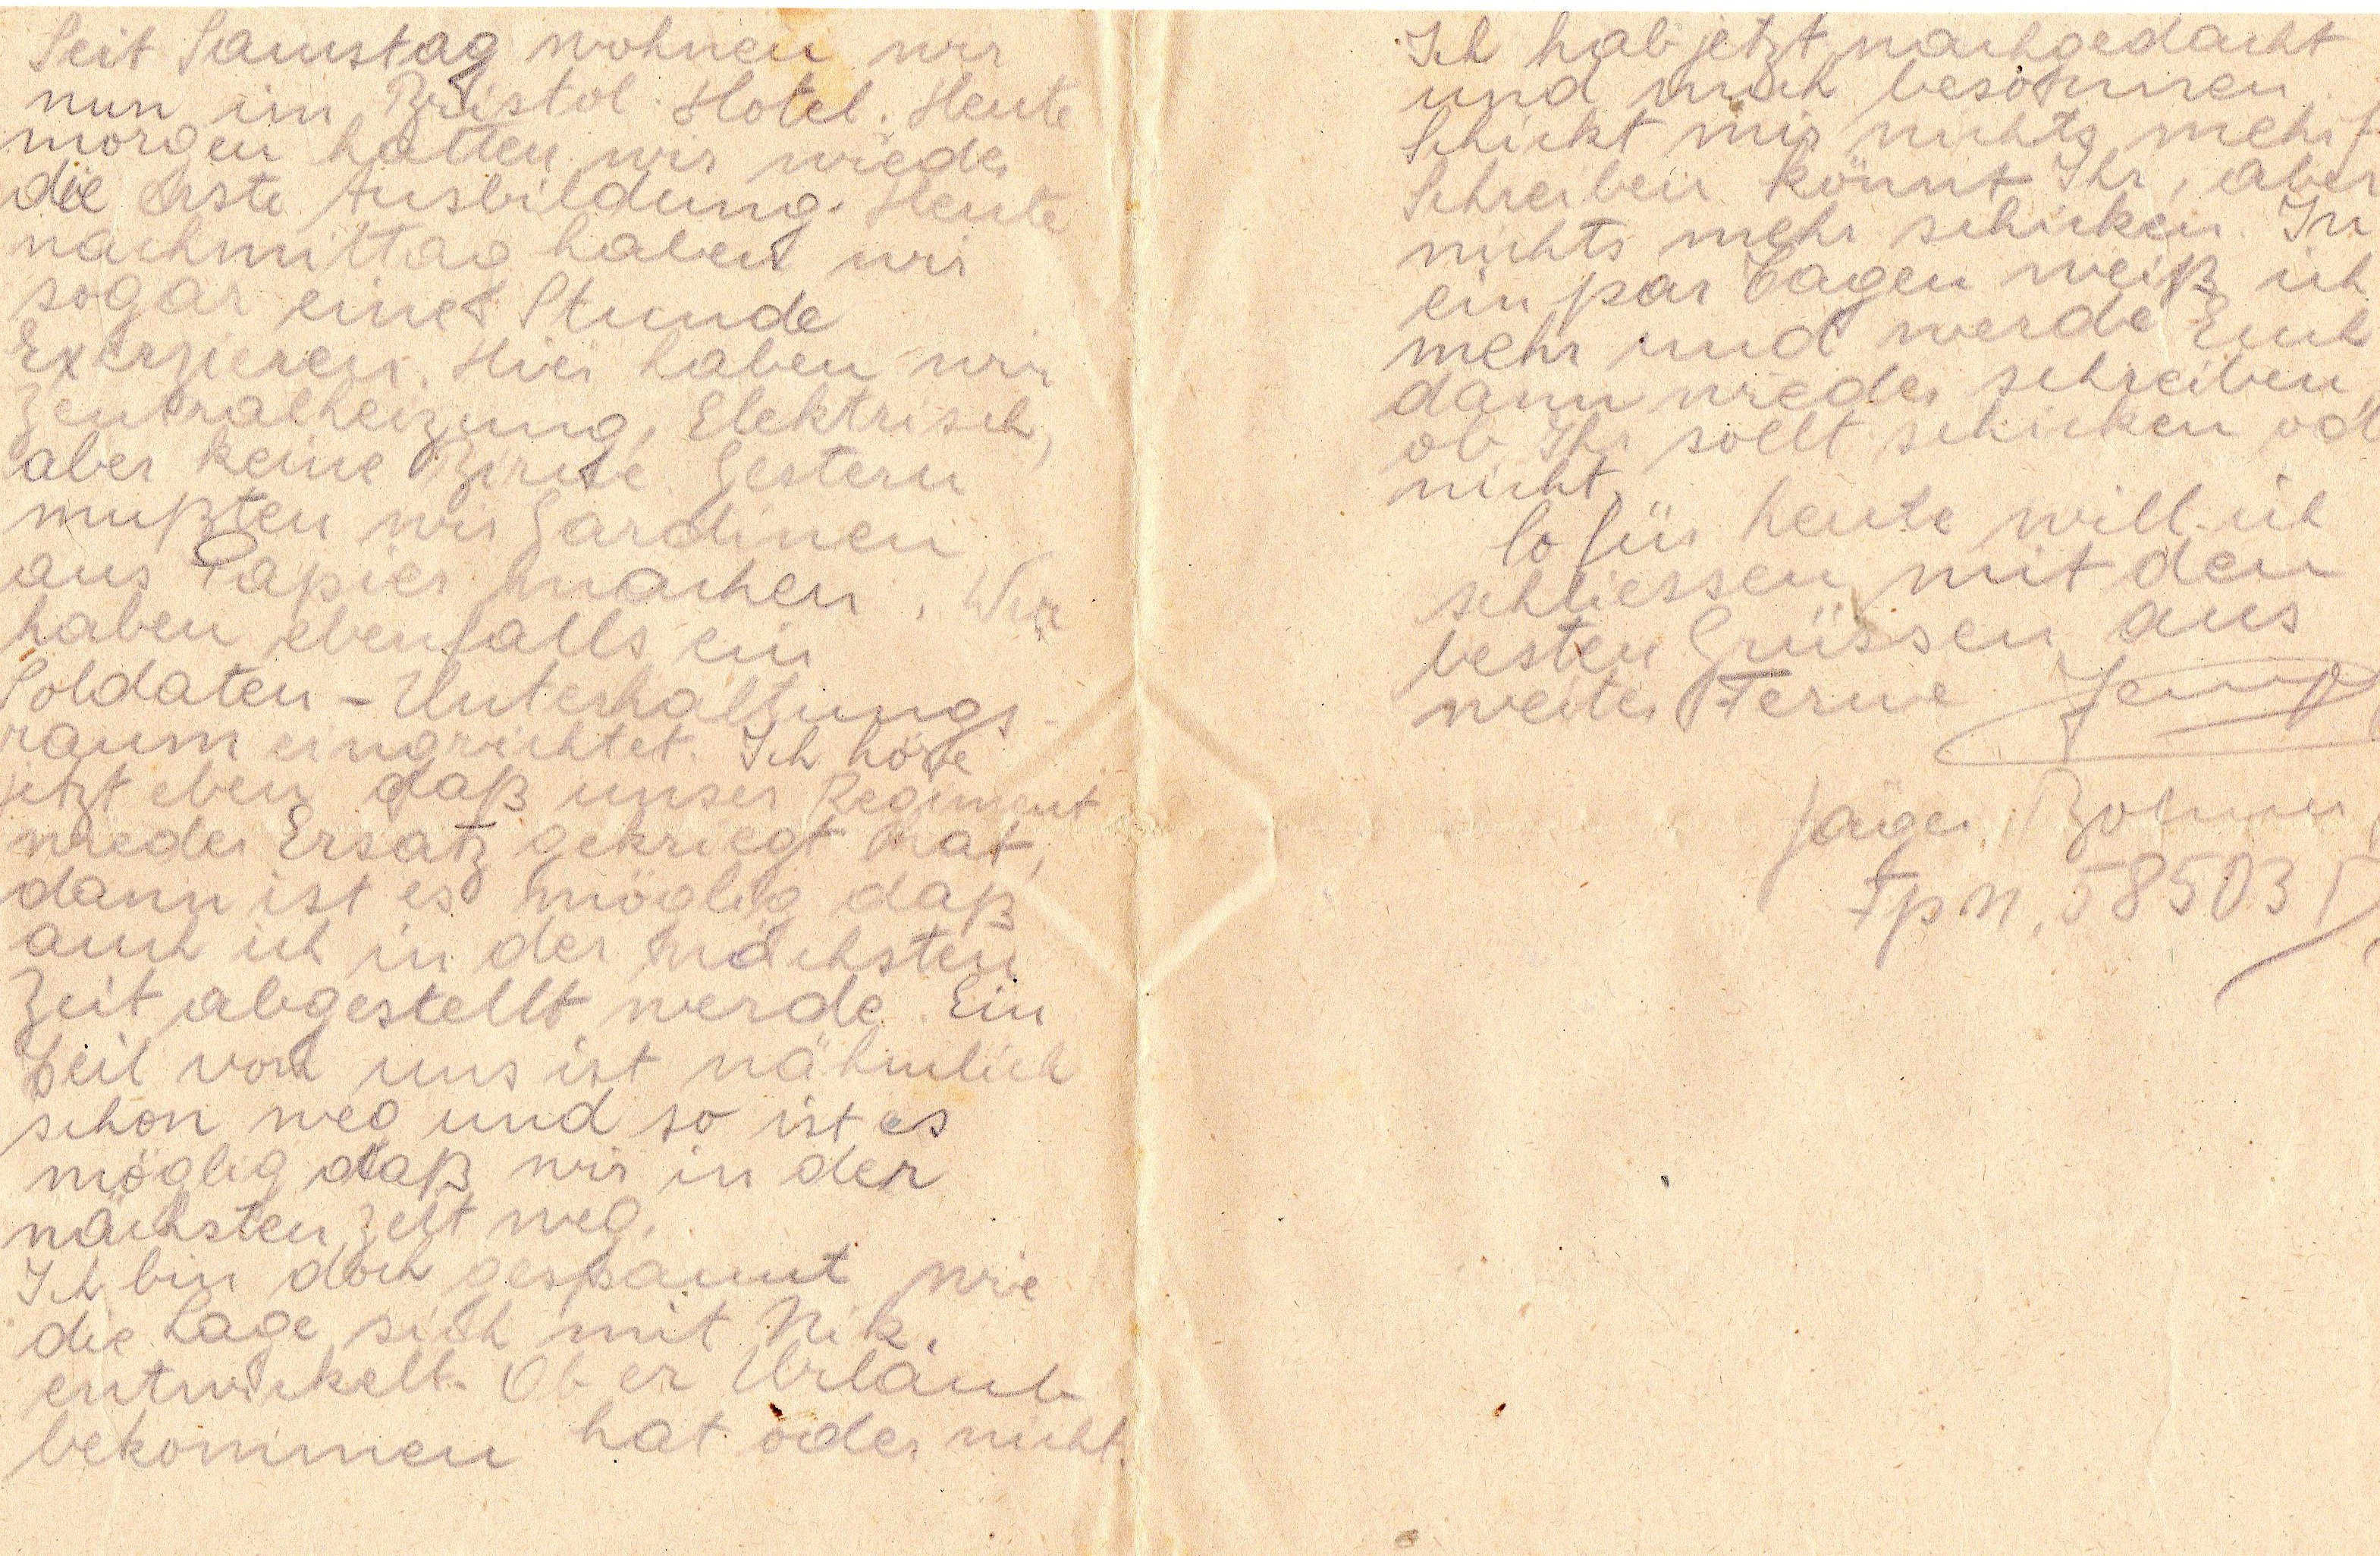 Seit Samstag wohnen wir
nun im Bristol Hotel. Heute
morgen hatten wir wieder
die erste Ausbildung. Heute
nachmittag haben wir
sogar eine Stunde
Exerzieren. Hier haben wir
Zentralheizung, Elektrisch,
aber keine Birne. Gestern
mußten wir Gardinen
aus Papier machen. Wir
haben ebenfalls ein
Soldaten-Unterhaltungs-
raum eingrichtet. Ich höre
jetzt eben daß unser Regiment
wieder Ersatz gekriegt hat,
dann ist es möglig daß
auch ich in der nächsten
Zeit abgestellt werde. Ein
Teil von uns ist nähmlich
schon weg und so ist es
möglig daß wir in der
nächsten Zeit weg.
Ich bin doch gespannt wie
die Lage sich mit Nik.
entwickelt. Ob er Urlaub
bekommen hat oder nicht.
Ich hab jetzt nachgedacht
und mich besonnen.
Schickt mir nichts mehr
Schreiben könnt Ihr, aber
nichts mehr schicken. In
ein par Tagen weiß ich
mehr und werde Euch
dann wieder schreiben,
ob Ihr sollt schicken od
nicht.
So für heute will ich
schliessen mit den
besten Grüssen aus
weiter Ferne Jemp
Jäger
Fpn. 58503